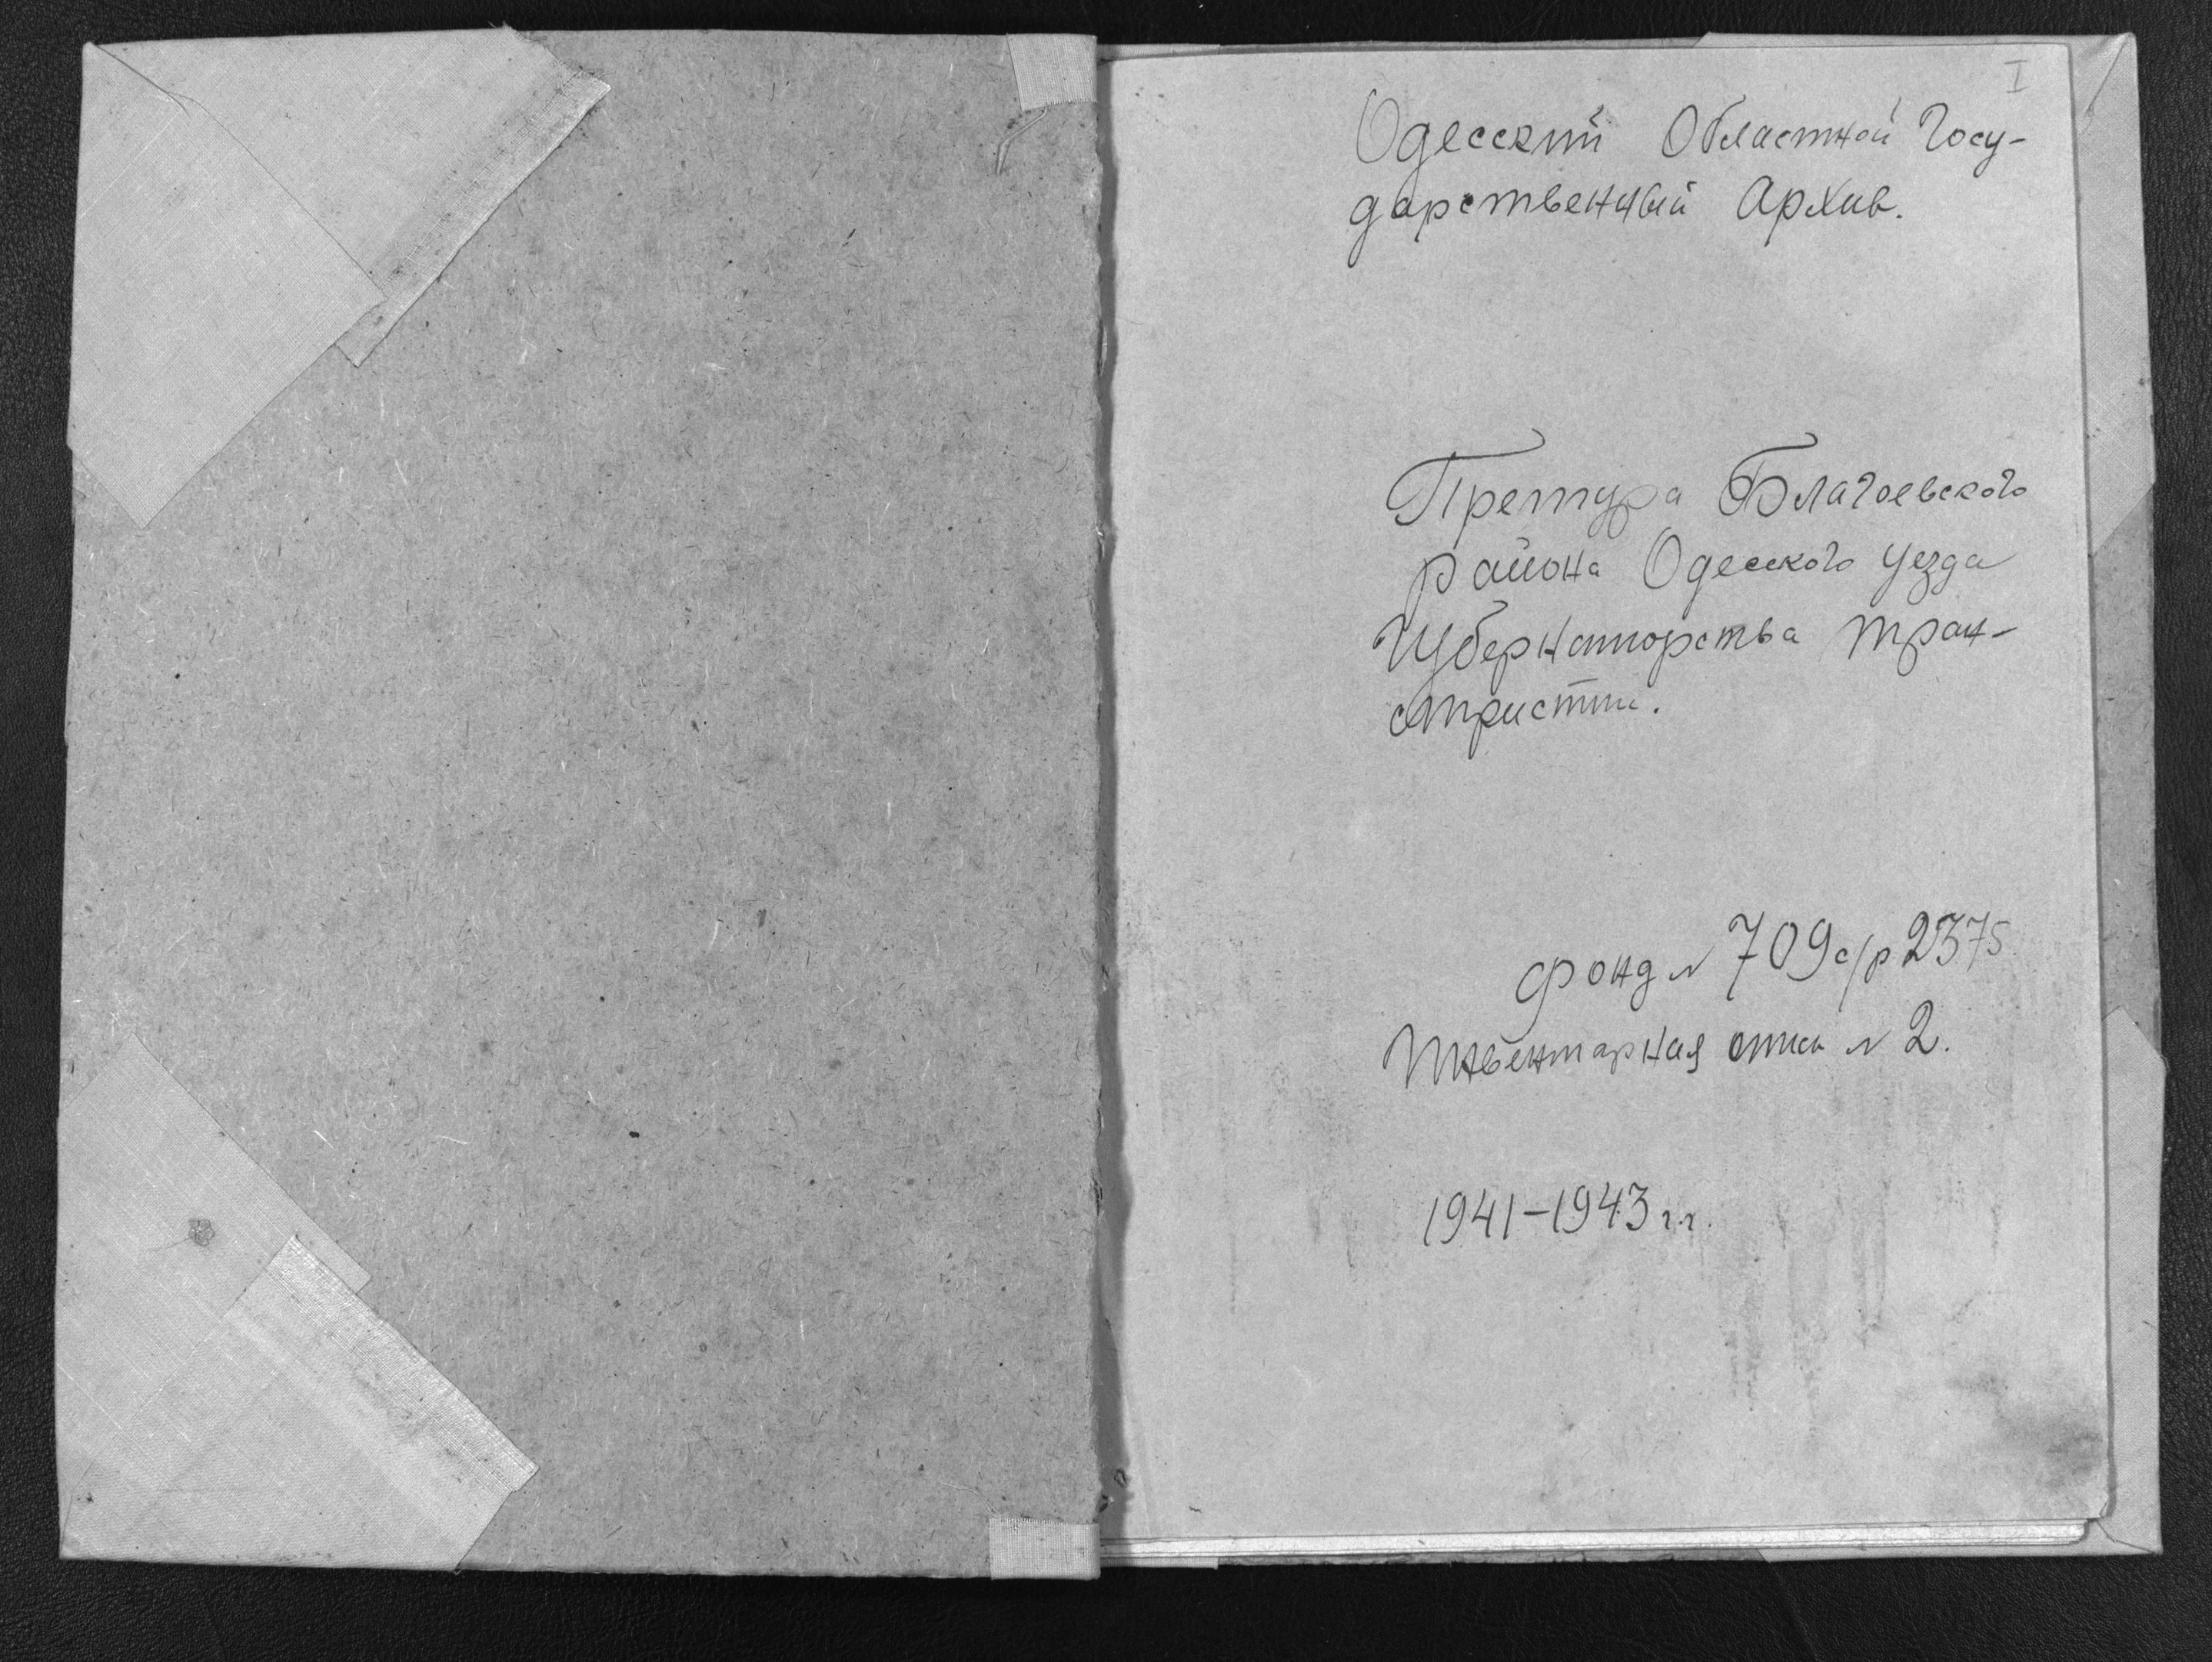 I
Одесский Областной Госу-
дарственный Архив.
Претура Благоевского
района Одесского уезда
Губернаторства тран-
стристии.
фонд № 709 с/р 2375
Инвентарная опись № 2.
1941-1943 г.г.